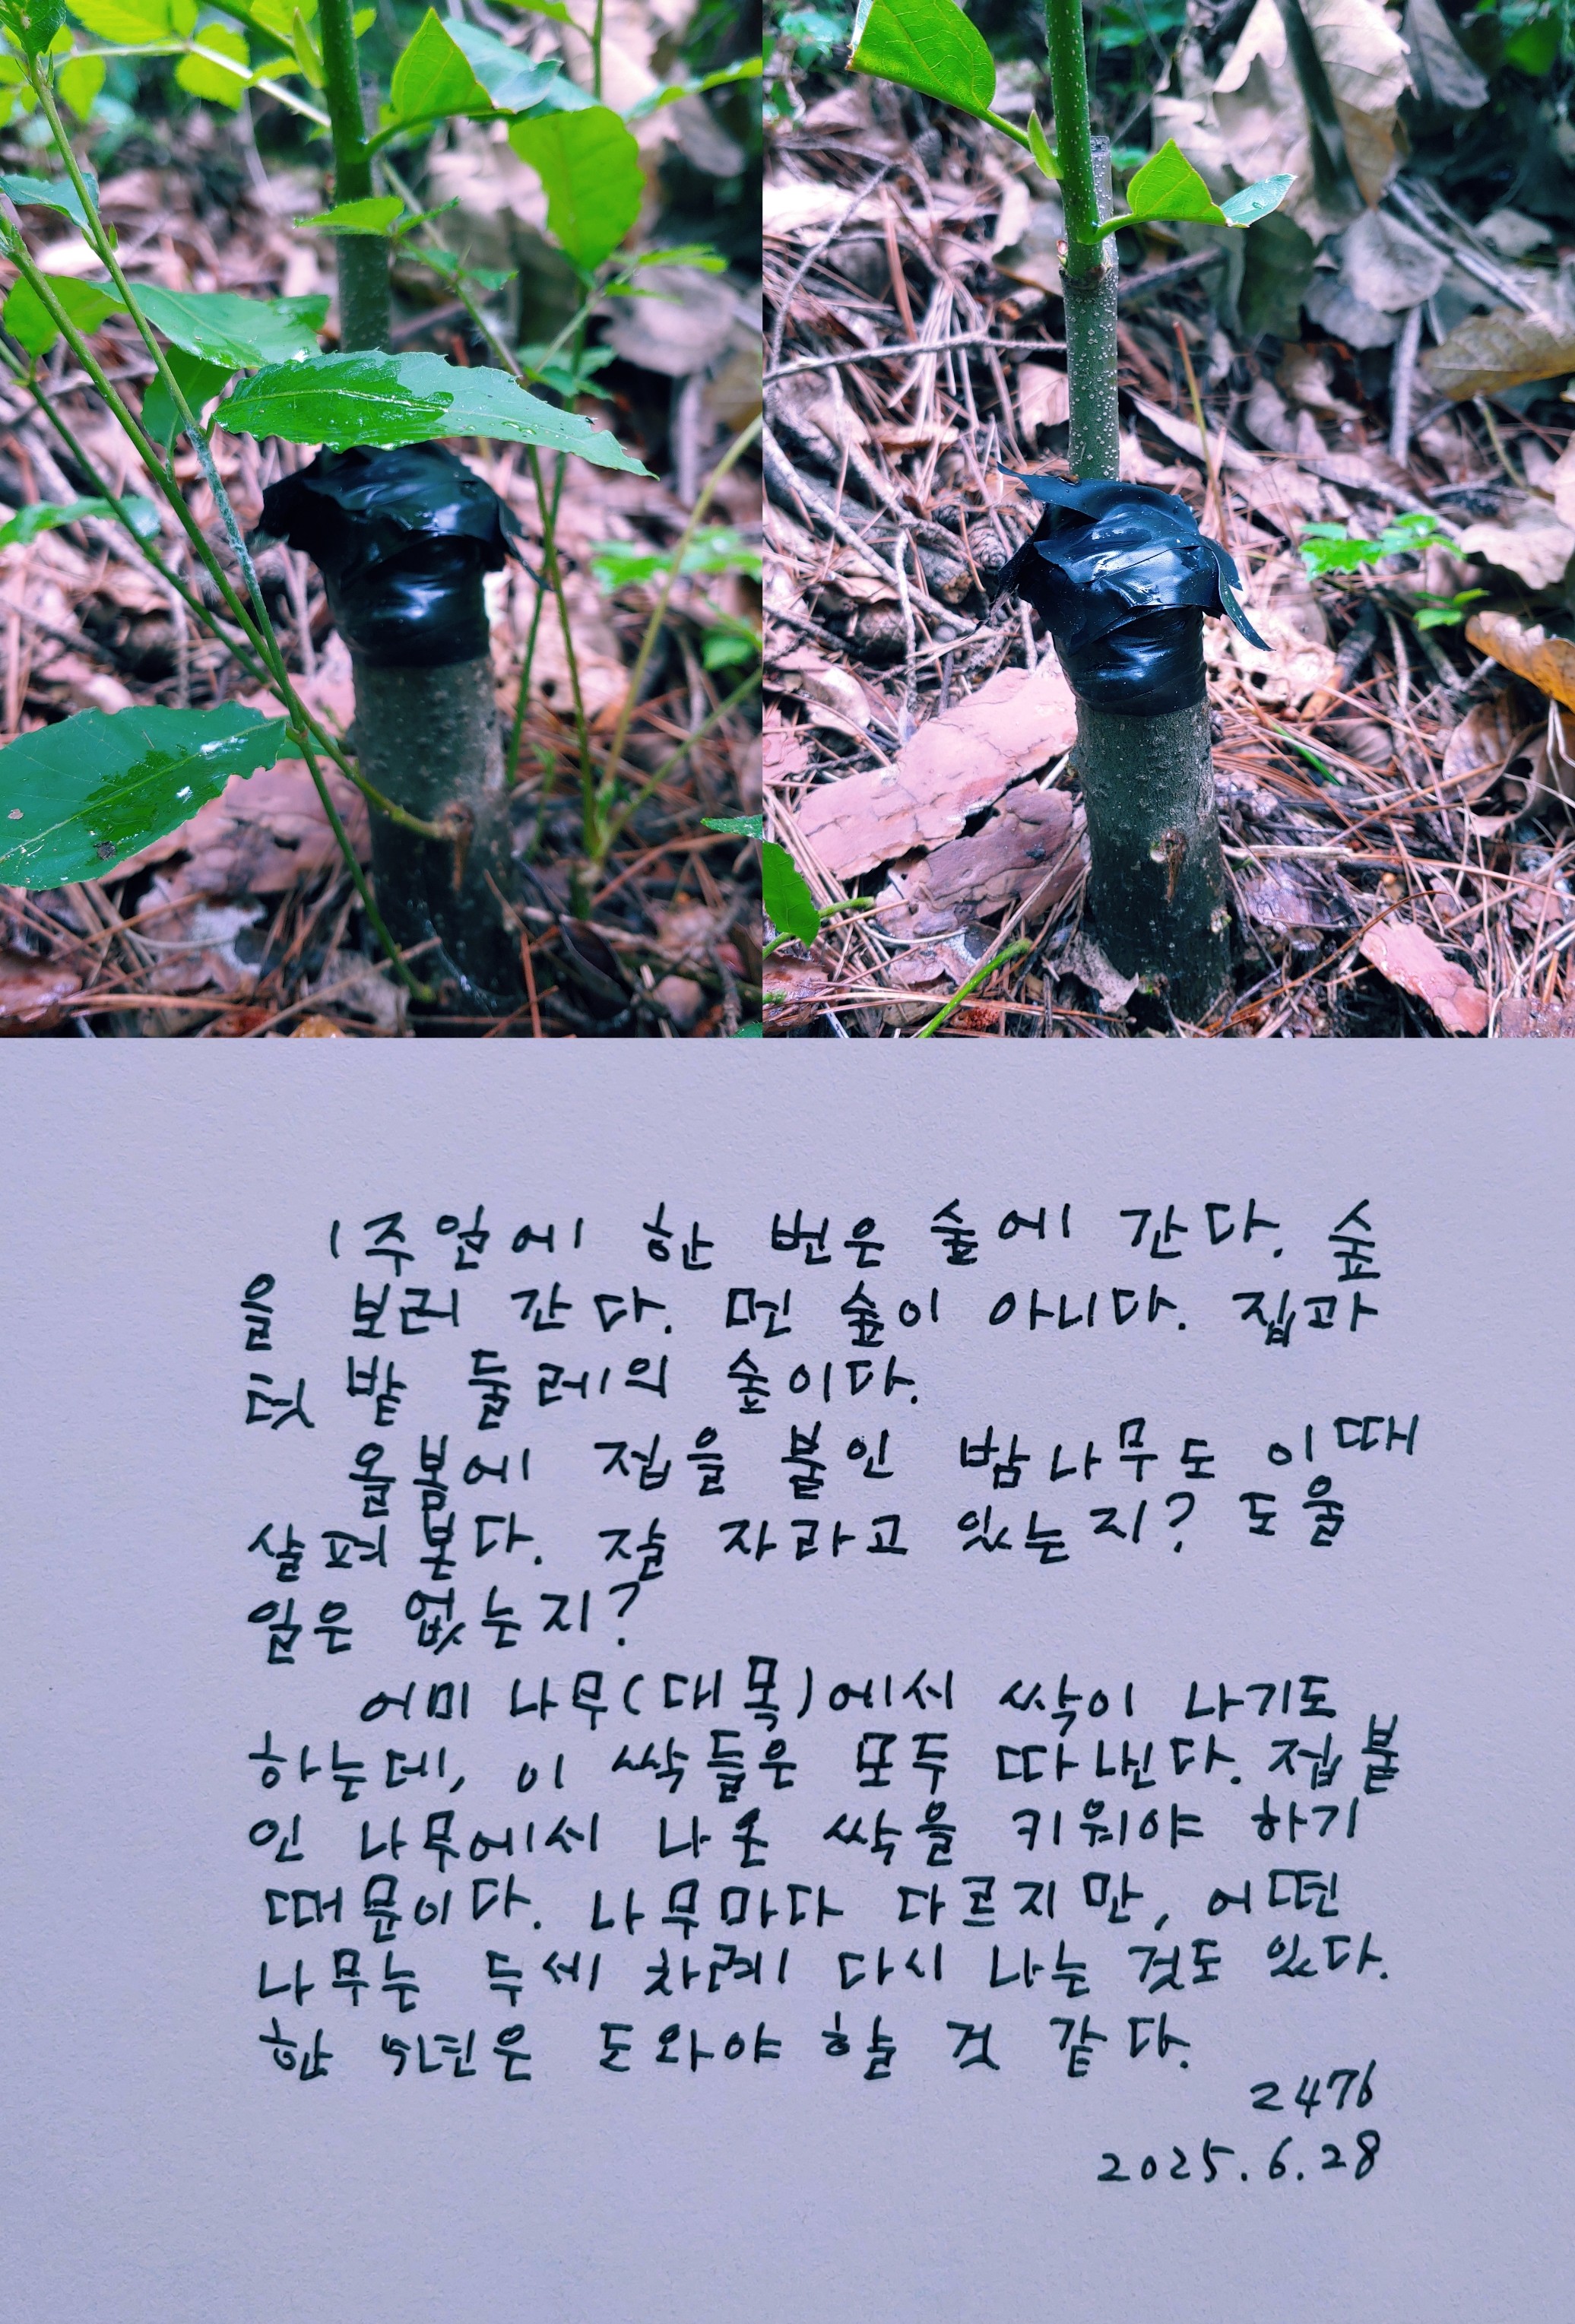 1주일에 한 번은 숲에 간다. 숲
을 보러 간다. 먼 숲이 아니다. 집과
텃밭 둘레의 숲이다.
올봄에 접을 붙인 밤나무도 이때
살펴본다. 잘 자라고 있는지? 도울
일은 없는지?
어미 나무(대목)에서 싹이 나기도
하는데, 이 싹들은 모두 따낸다. 접붙
인 나무에서 나온 싹을 키워야 하기
때문이다. 나무마다 다르지만, 어떤
나무는 두세 차례 다시 나는 것도 있다.
한 5년은 도와야 할 것 같다.
2476
2025.6.28